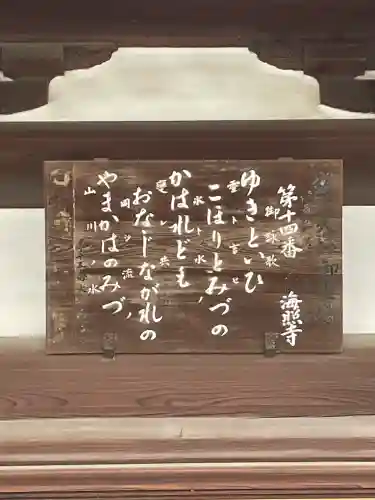 第十四番 海照寺
御詠歌
ゆきといひ
雪ト言ヒ
こほりとみづの
氷ト水ノ
かはれども
変レ共
おなじながれの
同ジ流ノ
やまかはのみづ
山川ノ水